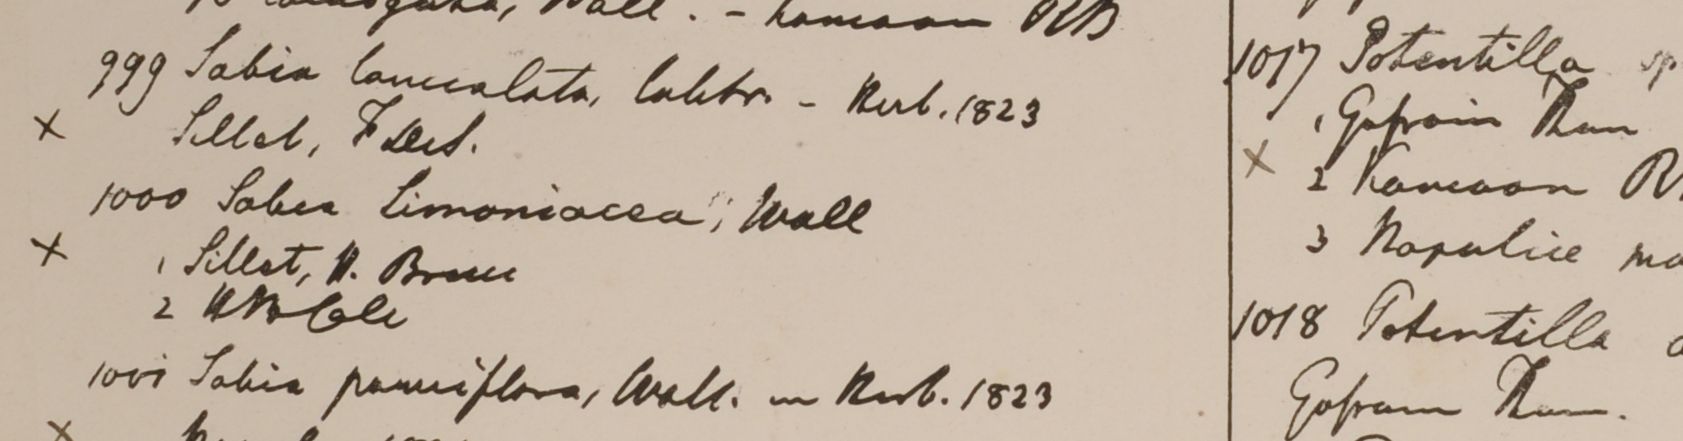 Wall. - Kamaon RB
999 Sabia lanceolata, Colebr. - Herb. 1823
× Sillet, F DeS.
1000 Sabia limoniacea, Wall
× 1 Sillet, H. Bruce
2 HBC
1001 Sabia parviflora, Wall. in Herb. 1823
×
1017 Potentilla sp
1 Gosain Than
× 2 Kamaon
3 Napalice
1018 Potentilla
Gosain Than.